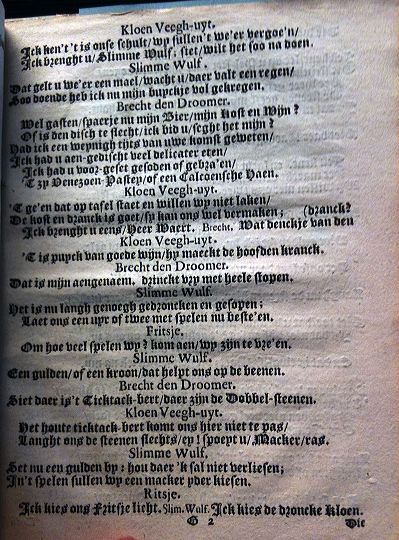 Kloen Veegh-uyt.
Ick ken't 't is onse schult/ wy sullen't we'er vergoe'n/
Ick brenght u/ Slimme Wulf: siet/ wilt het soo na doen.
Slimme Wulf.
Dat gelt u we'er een mael/ wacht u/ daer valt een regen/
Soo doende heb ick nu mijn buyckje vol gekregen.
Brecht den Droomer.
Wel gasten/ spaerje nu mijn Bier/ mijn Kost en Wijn?
Of is den disch te slecht/ ick bid u/ seght het mijn?
Had ick een weynigh tijts van uwe komst geweten/
Ick had u aen-gedischt veel delicater eten/
Ick had u voor-geset gesoden of gebra'en/
'T zy Venezoen-Pastey/ of een Calcoensche Haen.
Kloen Veegh-uyt.
'T ge'en dat op tafel staet en willen wy niet laken/
De kost en dranck is goet/ sy kan ons wel vermaken; (dranck?
Ick brenght u eens/ Heer Waert. Brecht. Wat denckje van den
Kloen Veegh-uyt.
'T is puyck van goede wijn/ hy maeckt de hoofden kranck.
Brecht den Droomer.
Dat is mijn aengenaem, drinckt vry met heele stopen.
Slimme Wulf.
Het is nu langh genoegh gedroncken en gesopen;
Laet ons een uyr of twee met spelen nu beste'en.
Fritsje.
Om hoe veel spelen wy? kom aen/ wy zijn te vre'en.
Slimme Wulf.
Een gulden/ of een kroon/ dat helpt ons op de beenen.
Brecht den Droomer.
Siet daer is't Ticktack-bert/ daer zijn de Dobbel-steenen.
Kloen Veegh-uyt.
Het houte ticktack-bert komt ons hier niet te pas/
Langht ons de steenen slechts/ ey! spoeyt u/ Macker/ ras.
Slimme Wulf.
Set nu een gulden by: hou daer 'k sal niet verliesen;
In't spelen sullen wy een macker yder kiesen.
Ritsje.
Ick kies ons Fritsje licht. Slim. Wulf. Ick kies de droncke Kloen.
G 2
Die